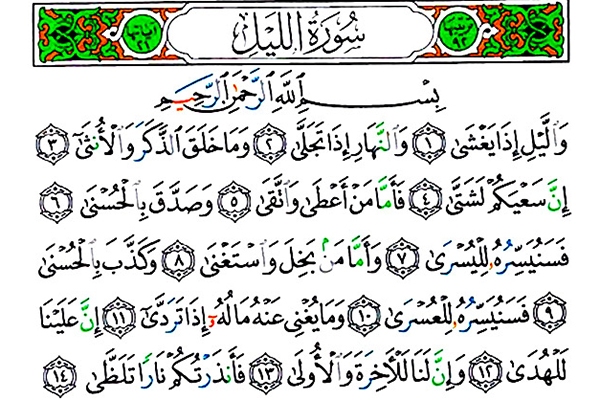 سُورَةُ اللَّيْلِ
بِسْمِ ٱللَّهِ ٱلرَّحْمَٰنِ ٱلرَّحِيمِ
وَٱلَّيْلِ إِذَا يَغْشَىٰ ١ وَٱلنَّهَارِ إِذَا تَجَلَّىٰ ٢ وَمَا خَلَقَ ٱلذَّكَرَ وَٱلْأُنثَىٰٓ ٣
إِنَّ سَعْيَكُمْ لَشَتَّىٰ ٤ فَأَمَّا مَنْ أَعْطَىٰ وَٱتَّقَىٰ ٥ وَصَدَّقَ بِٱلْحُسْنَىٰ ٦
فَسَنُيَسِّرُهُۥ لِلْيُسْرَىٰ ٧ وَأَمَّا مَنۢ بَخِلَ وَٱسْتَغْنَىٰ ٨ وَكَذَّبَ بِٱلْحُسْنَىٰ
٩ فَسَنُيَسِّرُهُۥ لِلْعُسْرَىٰ ١٠ وَمَا يُغْنِى عَنْهُ مَالُهُۥٓ إِذَا تَرَدَّىٰٓ ١١ إِنَّ عَلَيْنَا
لَلْهُدَىٰ ١٢ وَإِنَّ لَنَا لَلْـَٔاخِرَةَ وَٱلْأُولَىٰ ١٣ فَأَنذَرْتُكُمْ نَارًا تَلَظَّىٰ ١٤